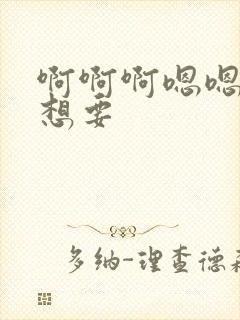 啊啊啊嗯嗯
想要
多纳-理查德森